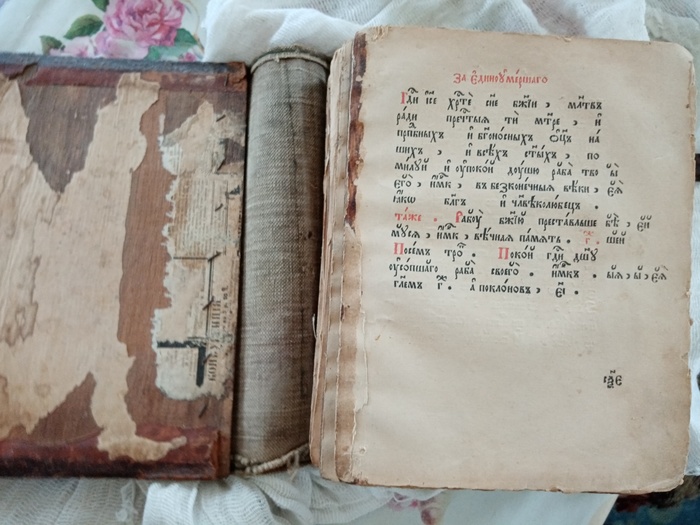 За Єдиноꙋмершаго
Гдⷭ҇и і҆с҃е хрⷭ҇тѐ сн҃е бж҃їи , мл҃твъ
ра́ди пречⷭ҇тыѧ тѝ мт҃ре , и҆
прпⷣбныхъ и҆ бг҃оно́сныхъ ѻц҃ъ на́
шихъ , и҆ всѣ́хъ ст҃ы́хъ , по
ми́лꙋй и҆ ᲂу҆поко́й дꙋ́шꙋ раба̀ тво ы
єго̀ , и҆мк҃ , въ безконе́чныѧ вѣ́ки , єѧ
ꙗ҆́кѡ бл҃гъ и҆ чл҃вѣколю́бецъ .
та́же . Рабꙋ̀ бж҃їю преста́вльше бѣ̀ , єи
мꙋсѧ , и҆мк҃ , вѣ́чнаѧ па́мѧть . г҃ . шеи
Посе́мъ тро́ . Поко́й гдⷭ҇и дш҃ꙋ
ᲂу҆со́пшаго раба̀ своего̀ . и҆мк҃ . ыѧ , ы , єѧ
гл҃емъ г҃ . а҆ покло́новъ , є҃і .